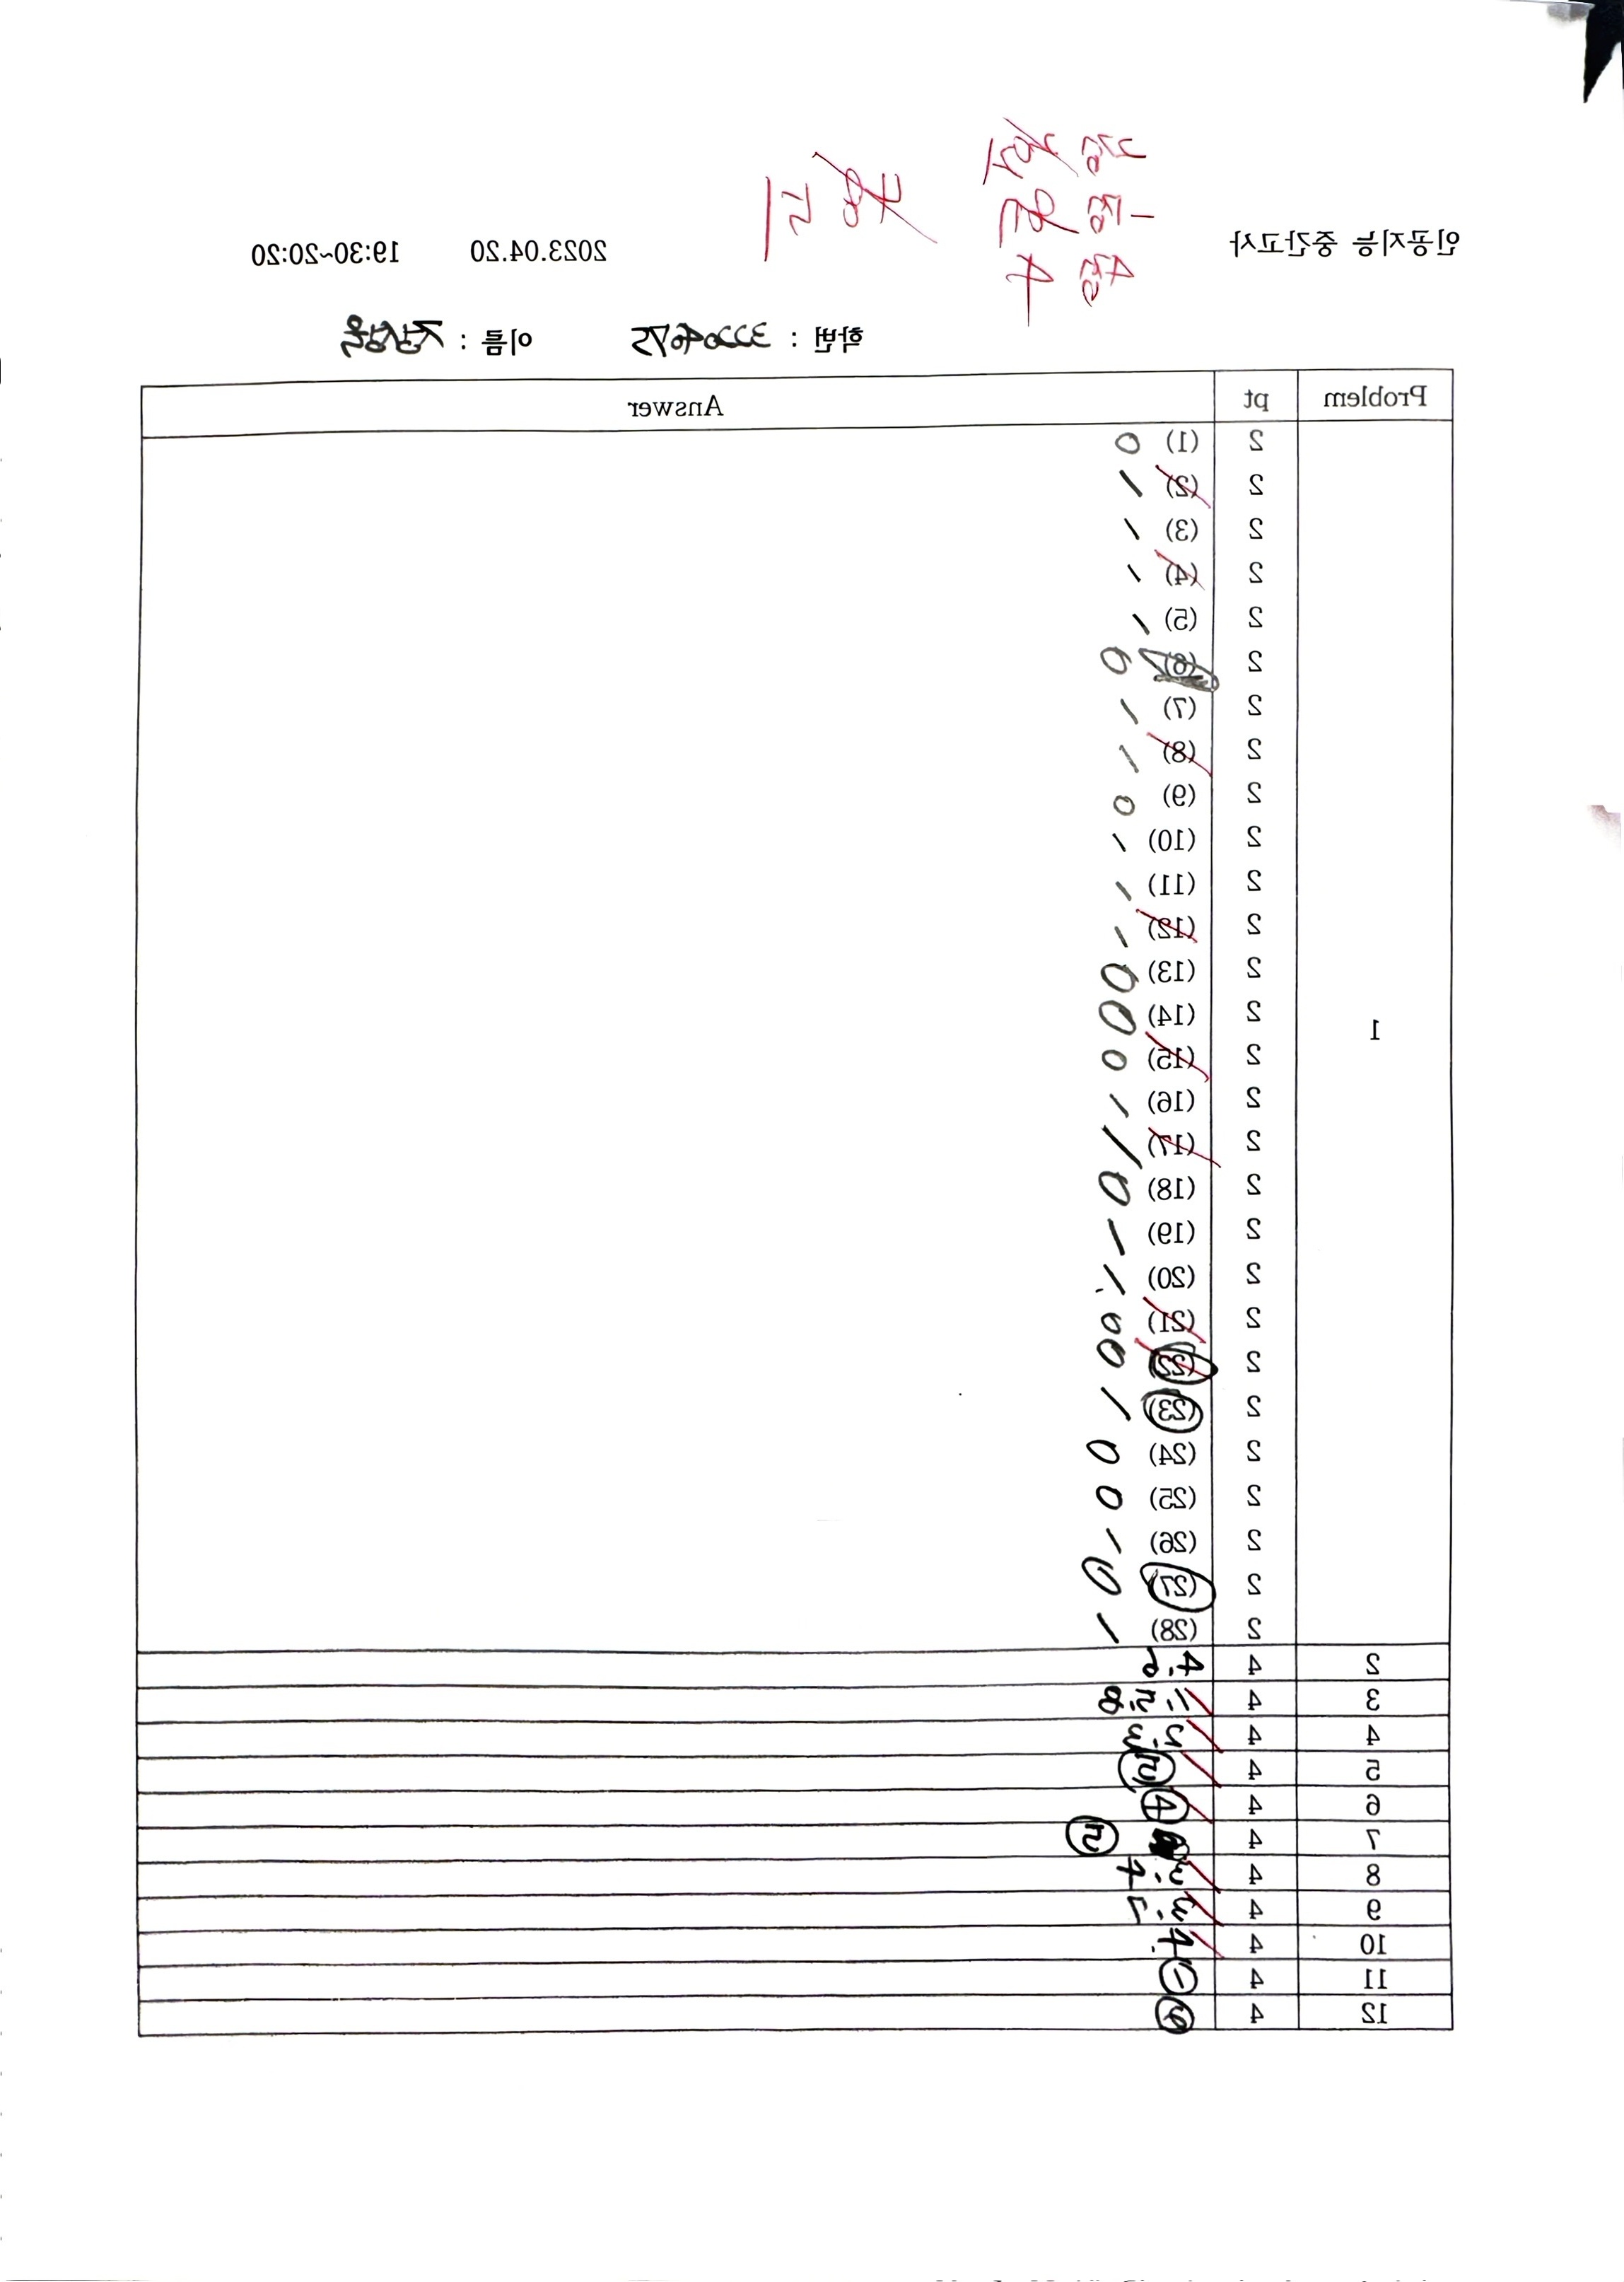 인공지능 중간고사 2023.04.20 19:30~20:20
학번 : 32204675 이름 : 정성윤
Problem pt Answer
1
2 (1) 0
2 (2) 1
2 (3) 1
2 (4) 1
2 (5) 1
2 (6) 0
2 (7) 1
2 (8) 1
2 (9) 0
2 (10) 1
2 (11) 1
2 (12) 1
2 (13) 0
2 (14) 0
2 (15) 0
2 (16) 1
2 (17) 1
2 (18) 0
2 (19) 1
2 (20) 1
2 (21) 0
2 (22) 0
2 (23) 1
2 (24) 0
2 (25) 0
2 (26) 1
2 (27) 0
2 (28) 1
2 4
3 4
4 4
5 4
6 4 4
7 4 2
8 4
9 4
10 4 4
11 4 1
12 4